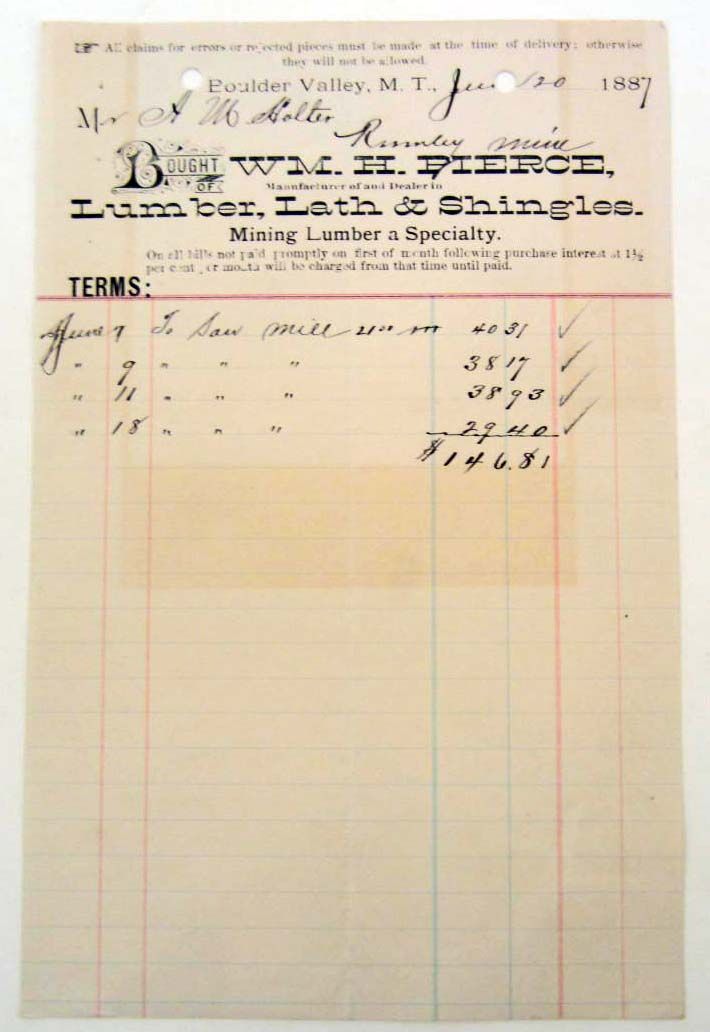 ☞ All claims for errors or rejected pieces must be made at the time of delivery; otherwise
they will not be allowed.
Boulder Valley, M. T., June 20 1887
Mr A M Holter
Rumley mine
BOUGHT OF WM. H. PIERCE,
Manufacturer of and Dealer in
Lumber, Lath & Shingles.
Mining Lumber a Specialty.
On all bills not paid promptly on first of month following purchase interest at 1½
per cent per month will be charged from that time until paid.
TERMS:
June 7 To Saw mill m 40 31 ✓
" 9 " " " 38 17 ✓
" 11 " " " 38 93 ✓
" 18 " " " 29 40 ✓
$146.81